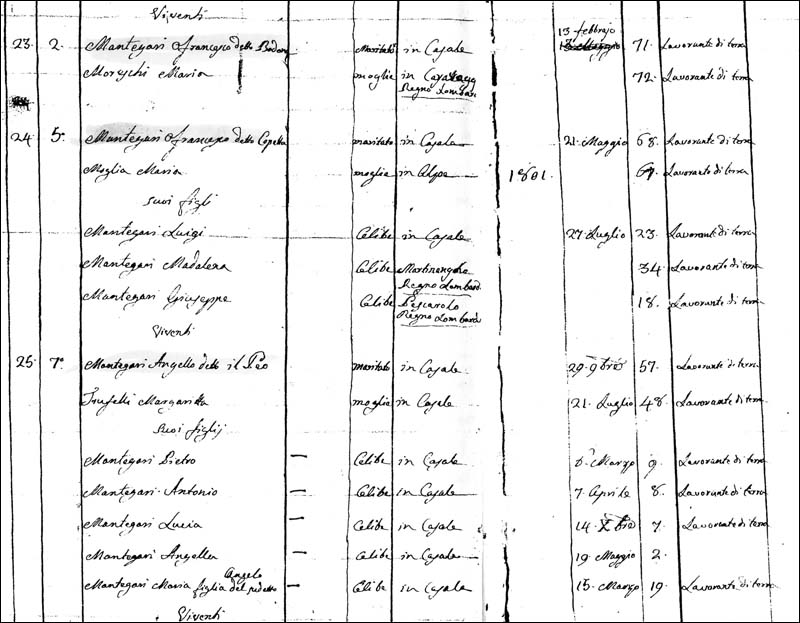 Viventi
23. 2. Mantegari Francesco detto maritato in Casale 13 febbrajo 71. Lavorante di terra
Maria moglie in 72. Lavorante di terra
Regno Lombar
24 5° Mantegari Francesco detto Capella maritato in Casale 21. Maggio 68. Lavorante di terra
Moglia Maria moglie in Alpe 1801. 67. Lavorante di terra
suoi figli
Mantegari Luigi Celibe in Casale 27. Luglio 23. Lavorante di terra
Mantegari Madalena Celibe Martinengho 34. Lavorante di terra
Regno Lombard
Mantegari Giuseppe Celibe Pescarolo 18. Lavorante di terra
Regno Lombardo
Viventi
25. 7° Mantegari Angello detto il Peo maritato in Casale 29. 9bre 57. Lavorante di terra
Margaritta moglie in Casale 21. Luglio 48. Lavorante di terra
suoi figlij
Mantegari Pietro — Celibe in Casale Marzo 9. Lavorante di terra
Mantegari Antonio — Celibe in Casale 7. Aprile 8. Lavorante di terra
Mantegari Lucia — Celibe in Casale 14. Xbre 7. Lavorante di terra
Mantegari Angella — Celibe in Casale 19. Maggio 2.
Angelo
Mantegari Maria figlia del — Celibe in Casale 15. Marzo 19. Lavorante di terra
Viventi